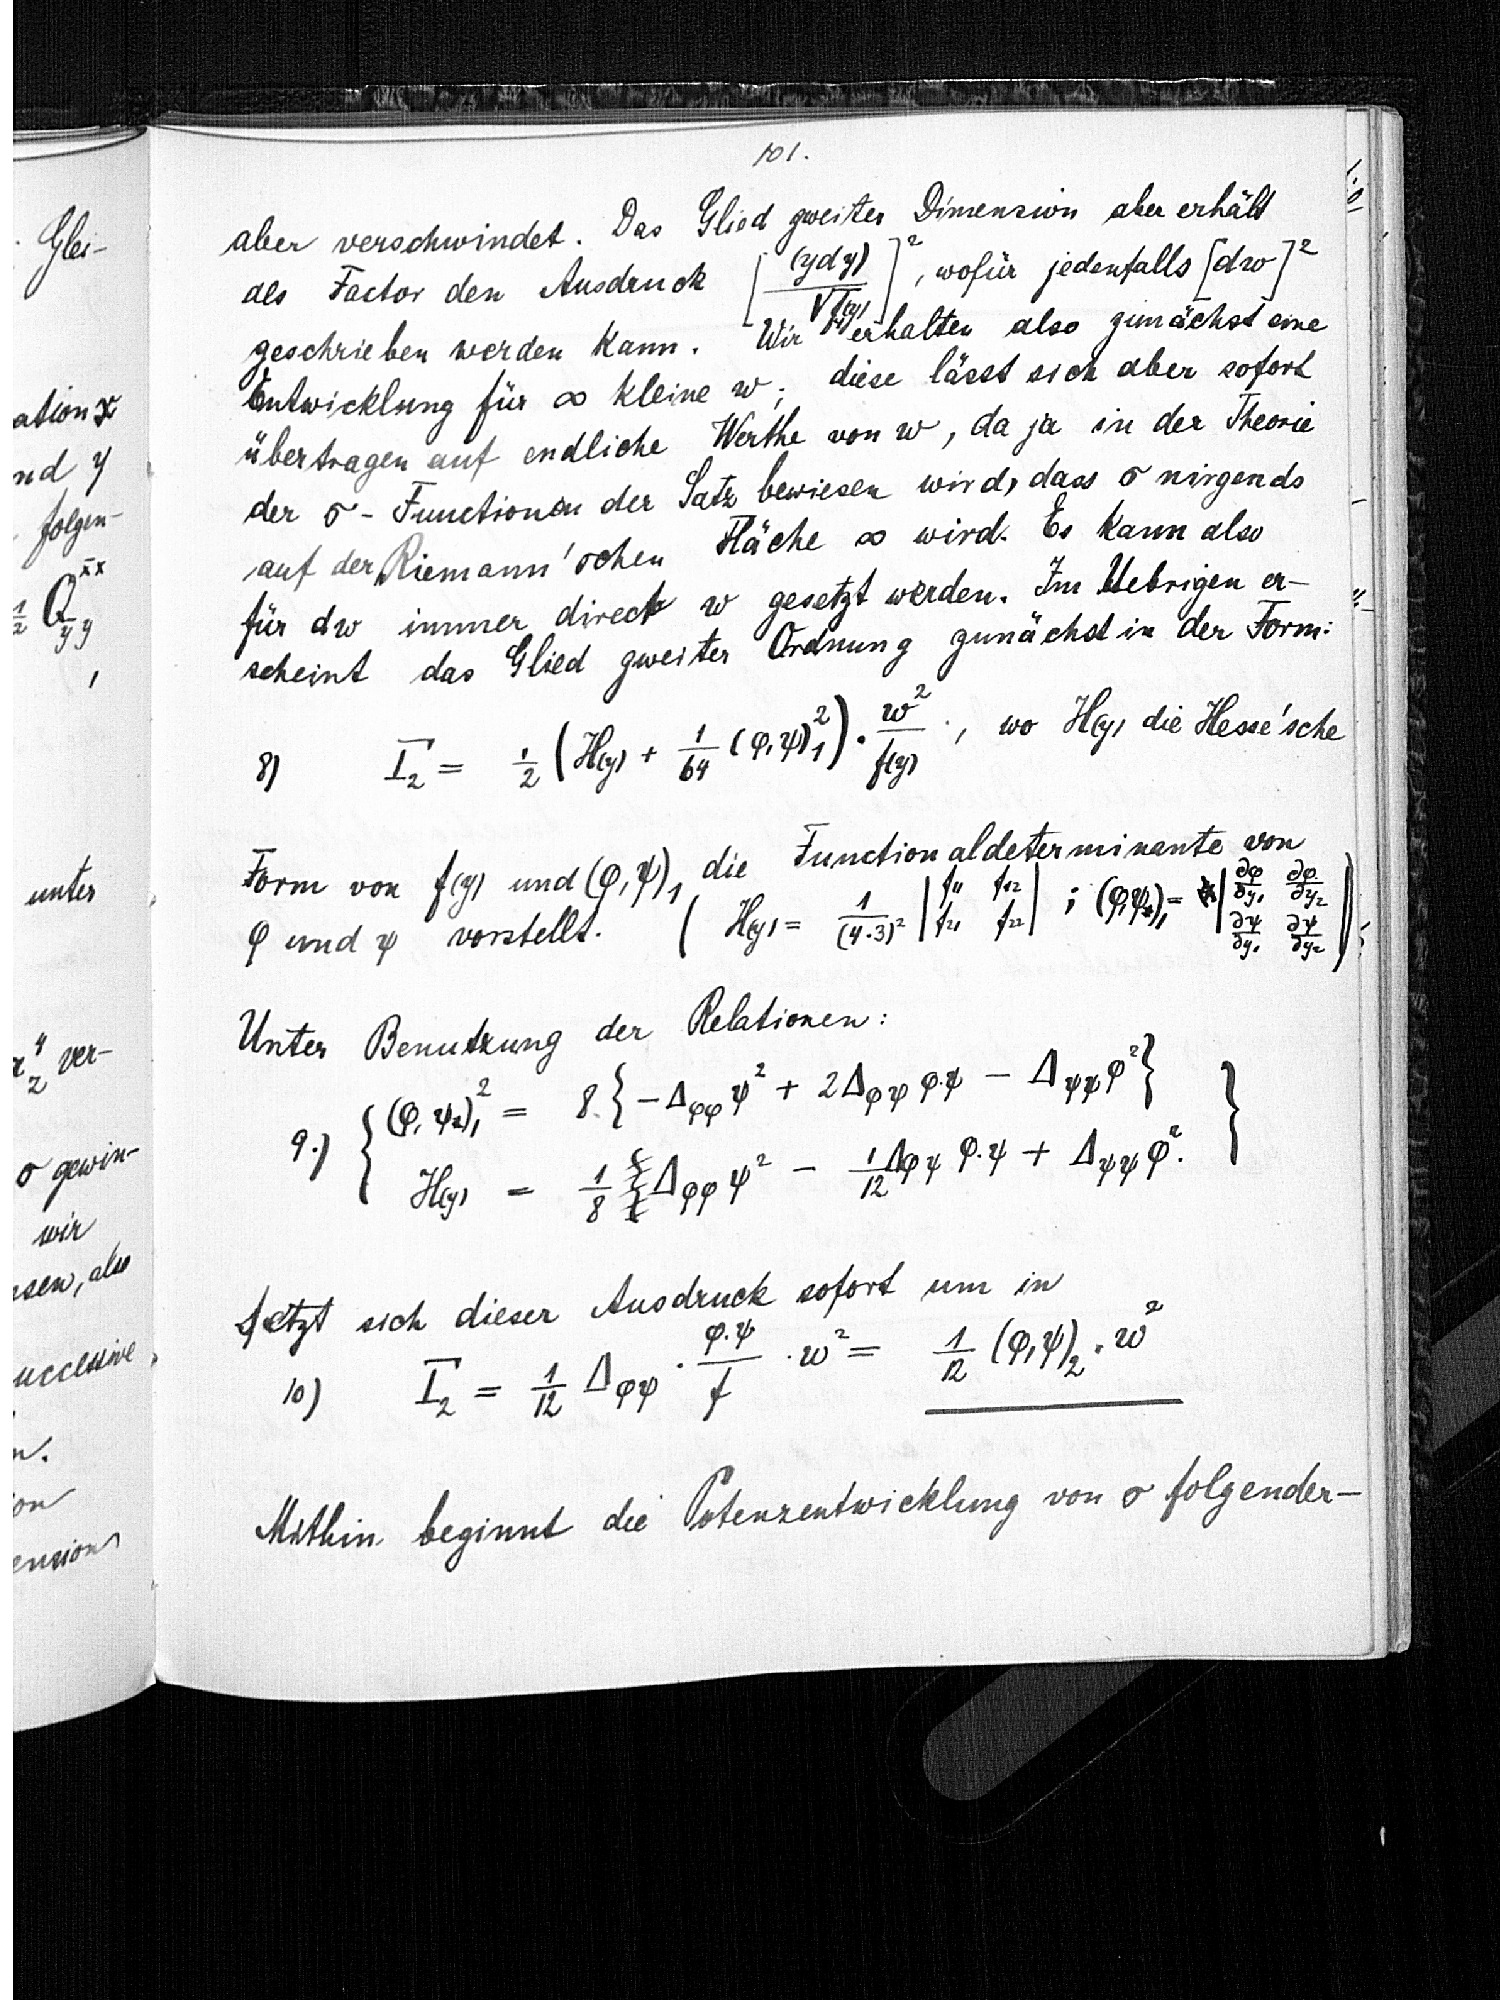 101.
aber verschwindet. Das Glied zweiter Dimension aber erhält
als Factor den Ausdruck [ (ydy) / √f(y) ]², wofür jedenfalls [dw]²
geschrieben werden kann. Wir erhalten also zunächst eine
Entwicklung für ∞ kleine w; diese lässt sich aber sofort
übertragen auf endliche Werthe von w, da ja in der Theorie
der σ-Functionen der Satz bewiesen wird, dass σ nirgends
auf der Riemann'schen Fläche ∞ wird. Es kann also
für dw immer direct w gesetzt werden. Im Uebrigen er-
scheint das Glied zweiter Ordnung zunächst in der Form:
8) Γ₂ = 1/2 (H(y) + 1/64 (φ,ψ)₁²) · w²/f(y) , wo H(y) die Hesse'sche
Form von f(y) und (φ,ψ)₁ die Functionaldeterminante von
φ und ψ vorstellt. ( H(y) = 1/(4·3)² | f₁₁ f₁₂ ; f₂₁ f₂₂ | ; (φ,ψ)₁ = | ∂φ/∂y₁ ∂φ/∂y₂ ; ∂ψ/∂y₁ ∂ψ/∂y₂ | )
Unter Benutzung der Relationen:
9.) { (φ,ψ)₁² = 8 { −Δφφ ψ² + 2Δφψ φ·ψ − Δψψ φ² } }
H(y) = 1/8 Δφφ ψ² − 1/12 Δφψ φ·ψ + Δψψ φ².
setzt sich dieser Ausdruck sofort um in
10) Γ₂ = 1/12 Δφψ · φ·ψ/f · w² = 1/12 (φ,ψ)₂ · w²
Mithin beginnt die Potenzentwicklung von σ folgender-
Glei-
ation x
nd y
folgen-
1/2 Q
unter
x₂⁴ ver-
σ gewin-
wir
ssen, also
uccessive
n.
ion
ension